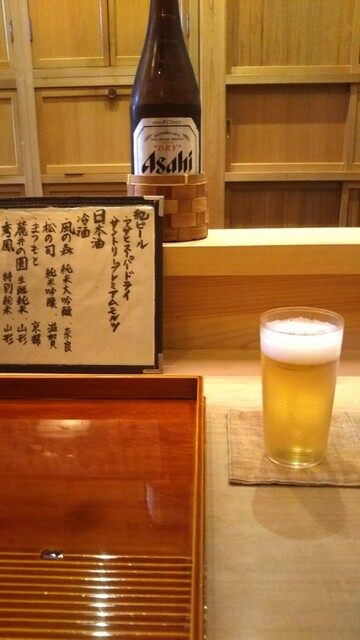 "DRY"
Asahi
瓶ビール
アサヒスーパードライ
サントリープレミアムモルツ
日本酒
冷酒
風の森 純米大吟醸 奈良
松の司 純米吟醸 滋賀
まつもと 京都
麓井の圓 生酛純米 山形
秀鳳 特別純米 山形